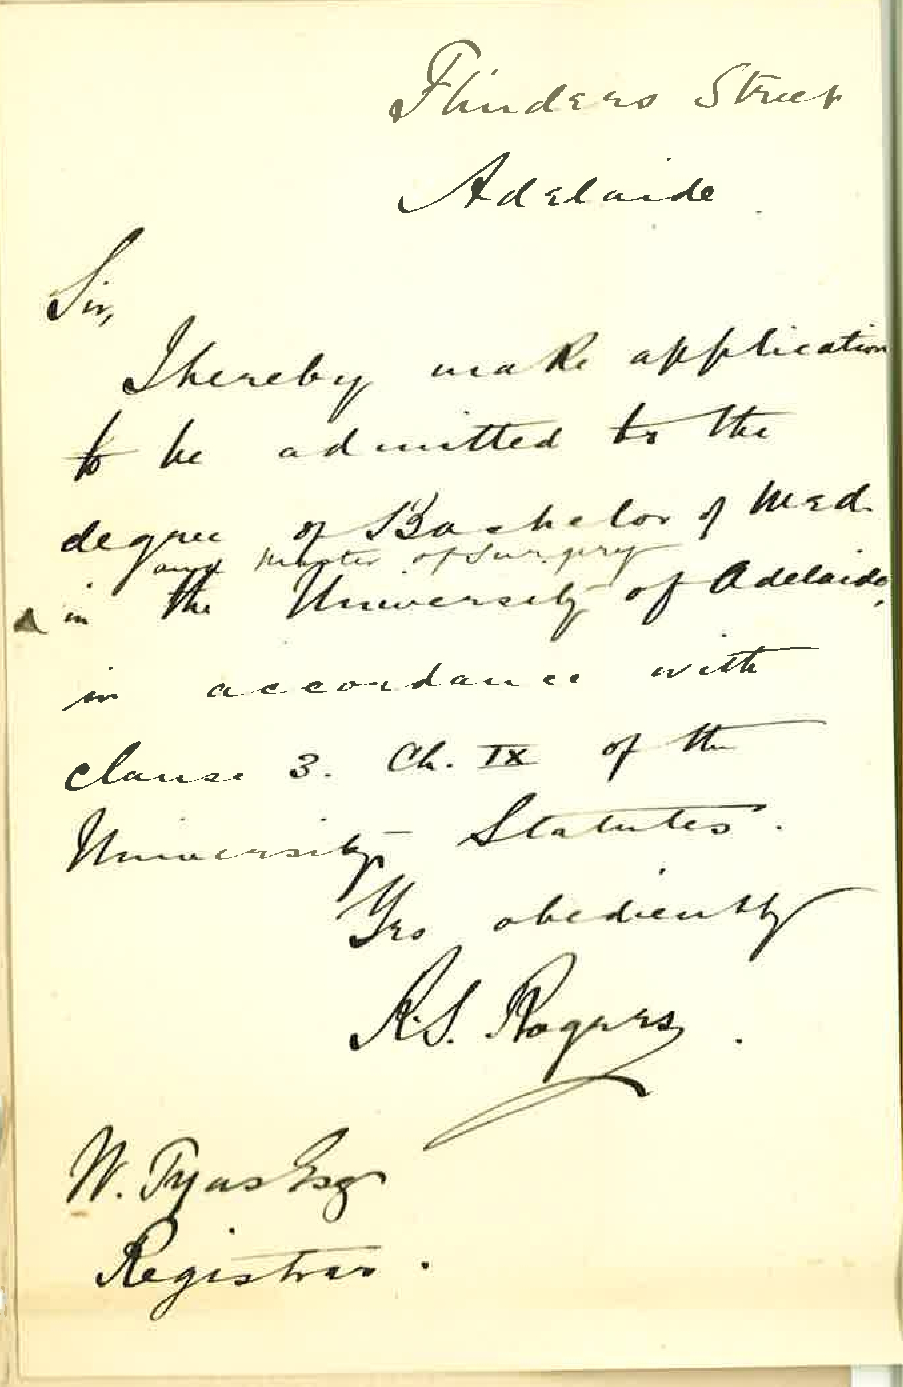 Flinders Street
Adelaide
Sir,
I hereby make application
to be admitted to the
degree of Bachelor of Med.
and Master of Surgery
in the University of Adelaide,
in accordance with
clause 3. Ch. IX of the
University Statutes.
Yrs obediently
R.S. Rogers.
W. Tyas Esq
Registrar.